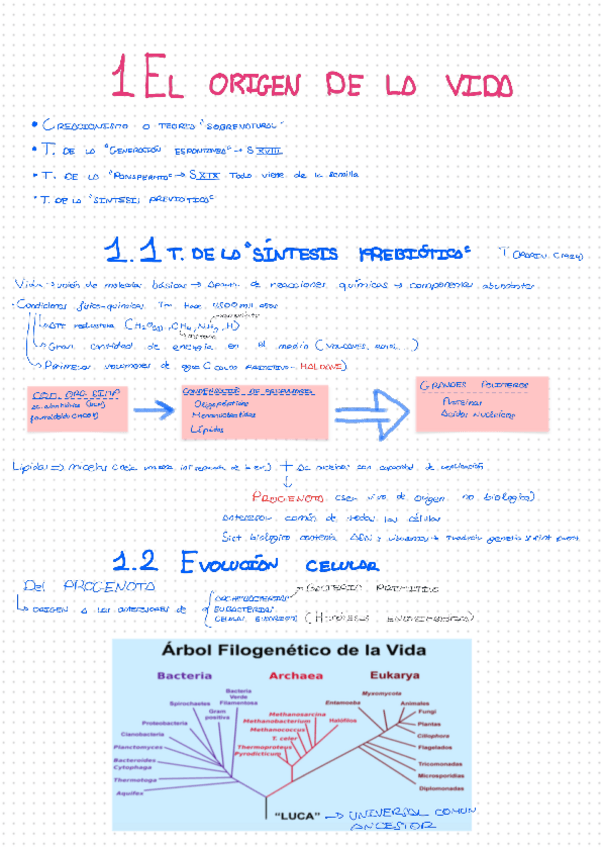 1 EL ORIGEN DE LA VIDA
• CREACIONISMO O TEORÍA "SOBRENATURAL"
• T. DE LA "GENERACIÓN ESPONTÁNEA" → S XVIII
• T. DE LA "PANSPERMIA" → S XIX Todo viene de la semilla
• T. DE LA "SÍNTESIS PREBIÓTICA"
1.1 T. DE LA "SÍNTESIS PREBIÓTICA" T OPARIN (1924)
Vida → unión de moléculas básicas → de reacciones químicas → componentes abundantes
· Condiciones físico-químicas Tm hace 4500 mill años
ATM reductora (H2O, CH4, NH3, H)
Gran cantidad de energía en el medio (VOLCANES, ...)
Primeras volúmenes de agua (CALDO PRIMITIVO - HALDANE)
COM. ORG. SIMP
CONDENSACIÓN DE
Oligopéptidos
Mononucleótidos
Lípidos
GRANDES POLÍMEROS
Proteínas
Ácidos Nucleicos
Lípidos ⇒ micelas + de proteínas con capacidad de replicación
PROGENOTA (ser vivo de origen no biológico)
Antecesor común de todas las células
Sist biológico contenía ADN
1.2 EVOLUCIÓN CELULAR
Del PROGENOTA
→ BACTERIA PRIMITIVA
ORIGEN A LOS ANTECESORES DE
ARCHEOBACTERIAS
EUBACTERIAS
(HIPÓTESIS ENDOSIMBIÓTICA)
Árbol Filogenético de la Vida
Bacteria Archaea Eukarya
Bacteria Verde Filamentosa
Spirochastes
Gram positiva
Proteobacteria
Cianobacteria
Planctomyces
Bacteroides Cytophaga
Thermotoga
Aquifex
Methanosarcina
Methanobacterium
Halófilos
Methanococcus
T. celer
Thermoproteus
Pyrodicticum
Myxomycota
Entamoeba
Animales
Fungi
Plantas
Ciliophora
Flagelados
Tricomonadas
Microsporidias
Diplomonadas
"LUCA" → UNIVERSAL COMUN
ANCESTOR